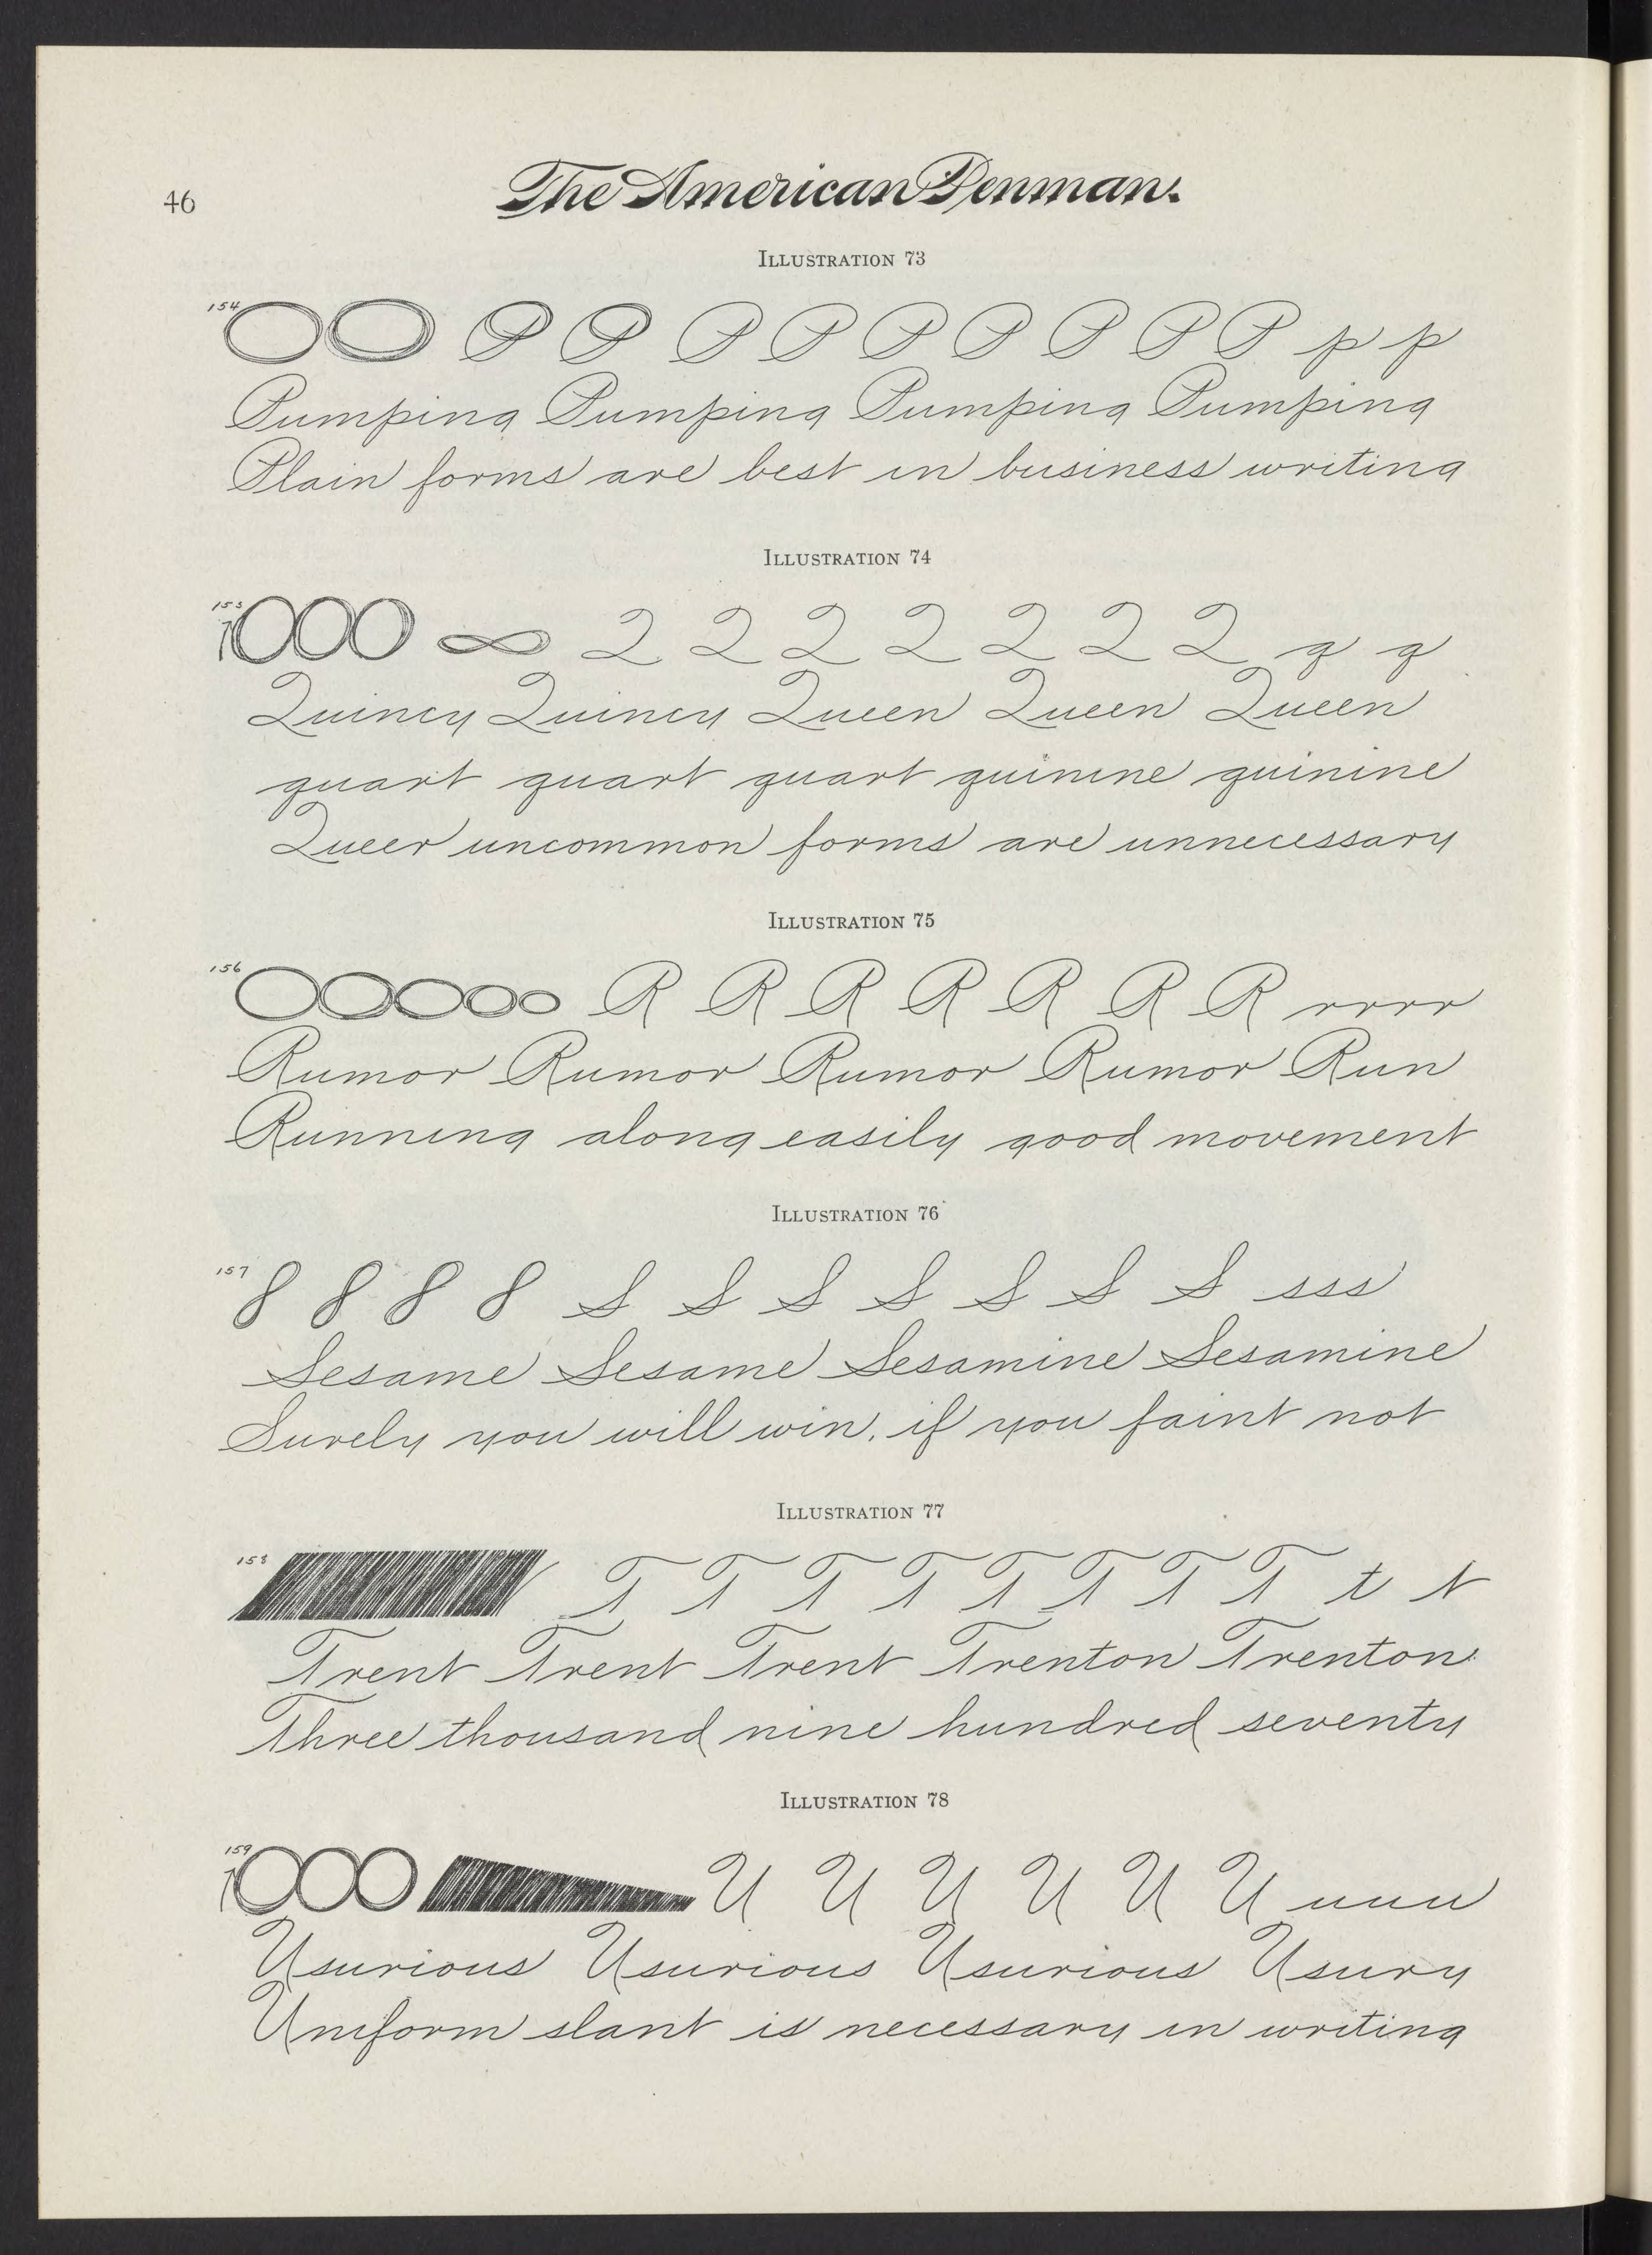 46
The American Penman.
ILLUSTRATION 73
154 O O P P P P P P P P P p p
Pumping Pumping Pumping Pumping
Plain forms are best in business writing
ILLUSTRATION 74
155 1 O O O Q Q Q Q Q Q Q q q
Quincy Quincy Queen Queen Queen
quart quart quart quinine quinine
Queer uncommon forms are unnecessary
ILLUSTRATION 75
156 O O O O O R R R R R R R r r r r
Rumor Rumor Rumor Rumor Run
Running along easily good movement
ILLUSTRATION 76
157 8 8 8 8 S S S S S S S sss
Sesame Sesame Sesamine Sesamine
Surely you will win, if you faint not
ILLUSTRATION 77
158 T T T T T T T T t t
Trent Trent Trent Trenton Trenton
Three thousand nine hundred seventy
ILLUSTRATION 78
159 1 O O O U U U U U U uuu
Usurious Usurious Usurious Usury
Uniform slant is necessary in writing